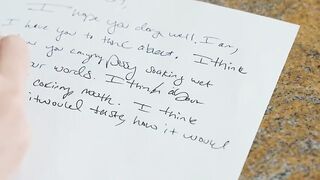 I hope you doing well. I am,
I have you to think about. I think
you pussy soaking wet
our words. I think about
mouth. I think
it would taste, how it would